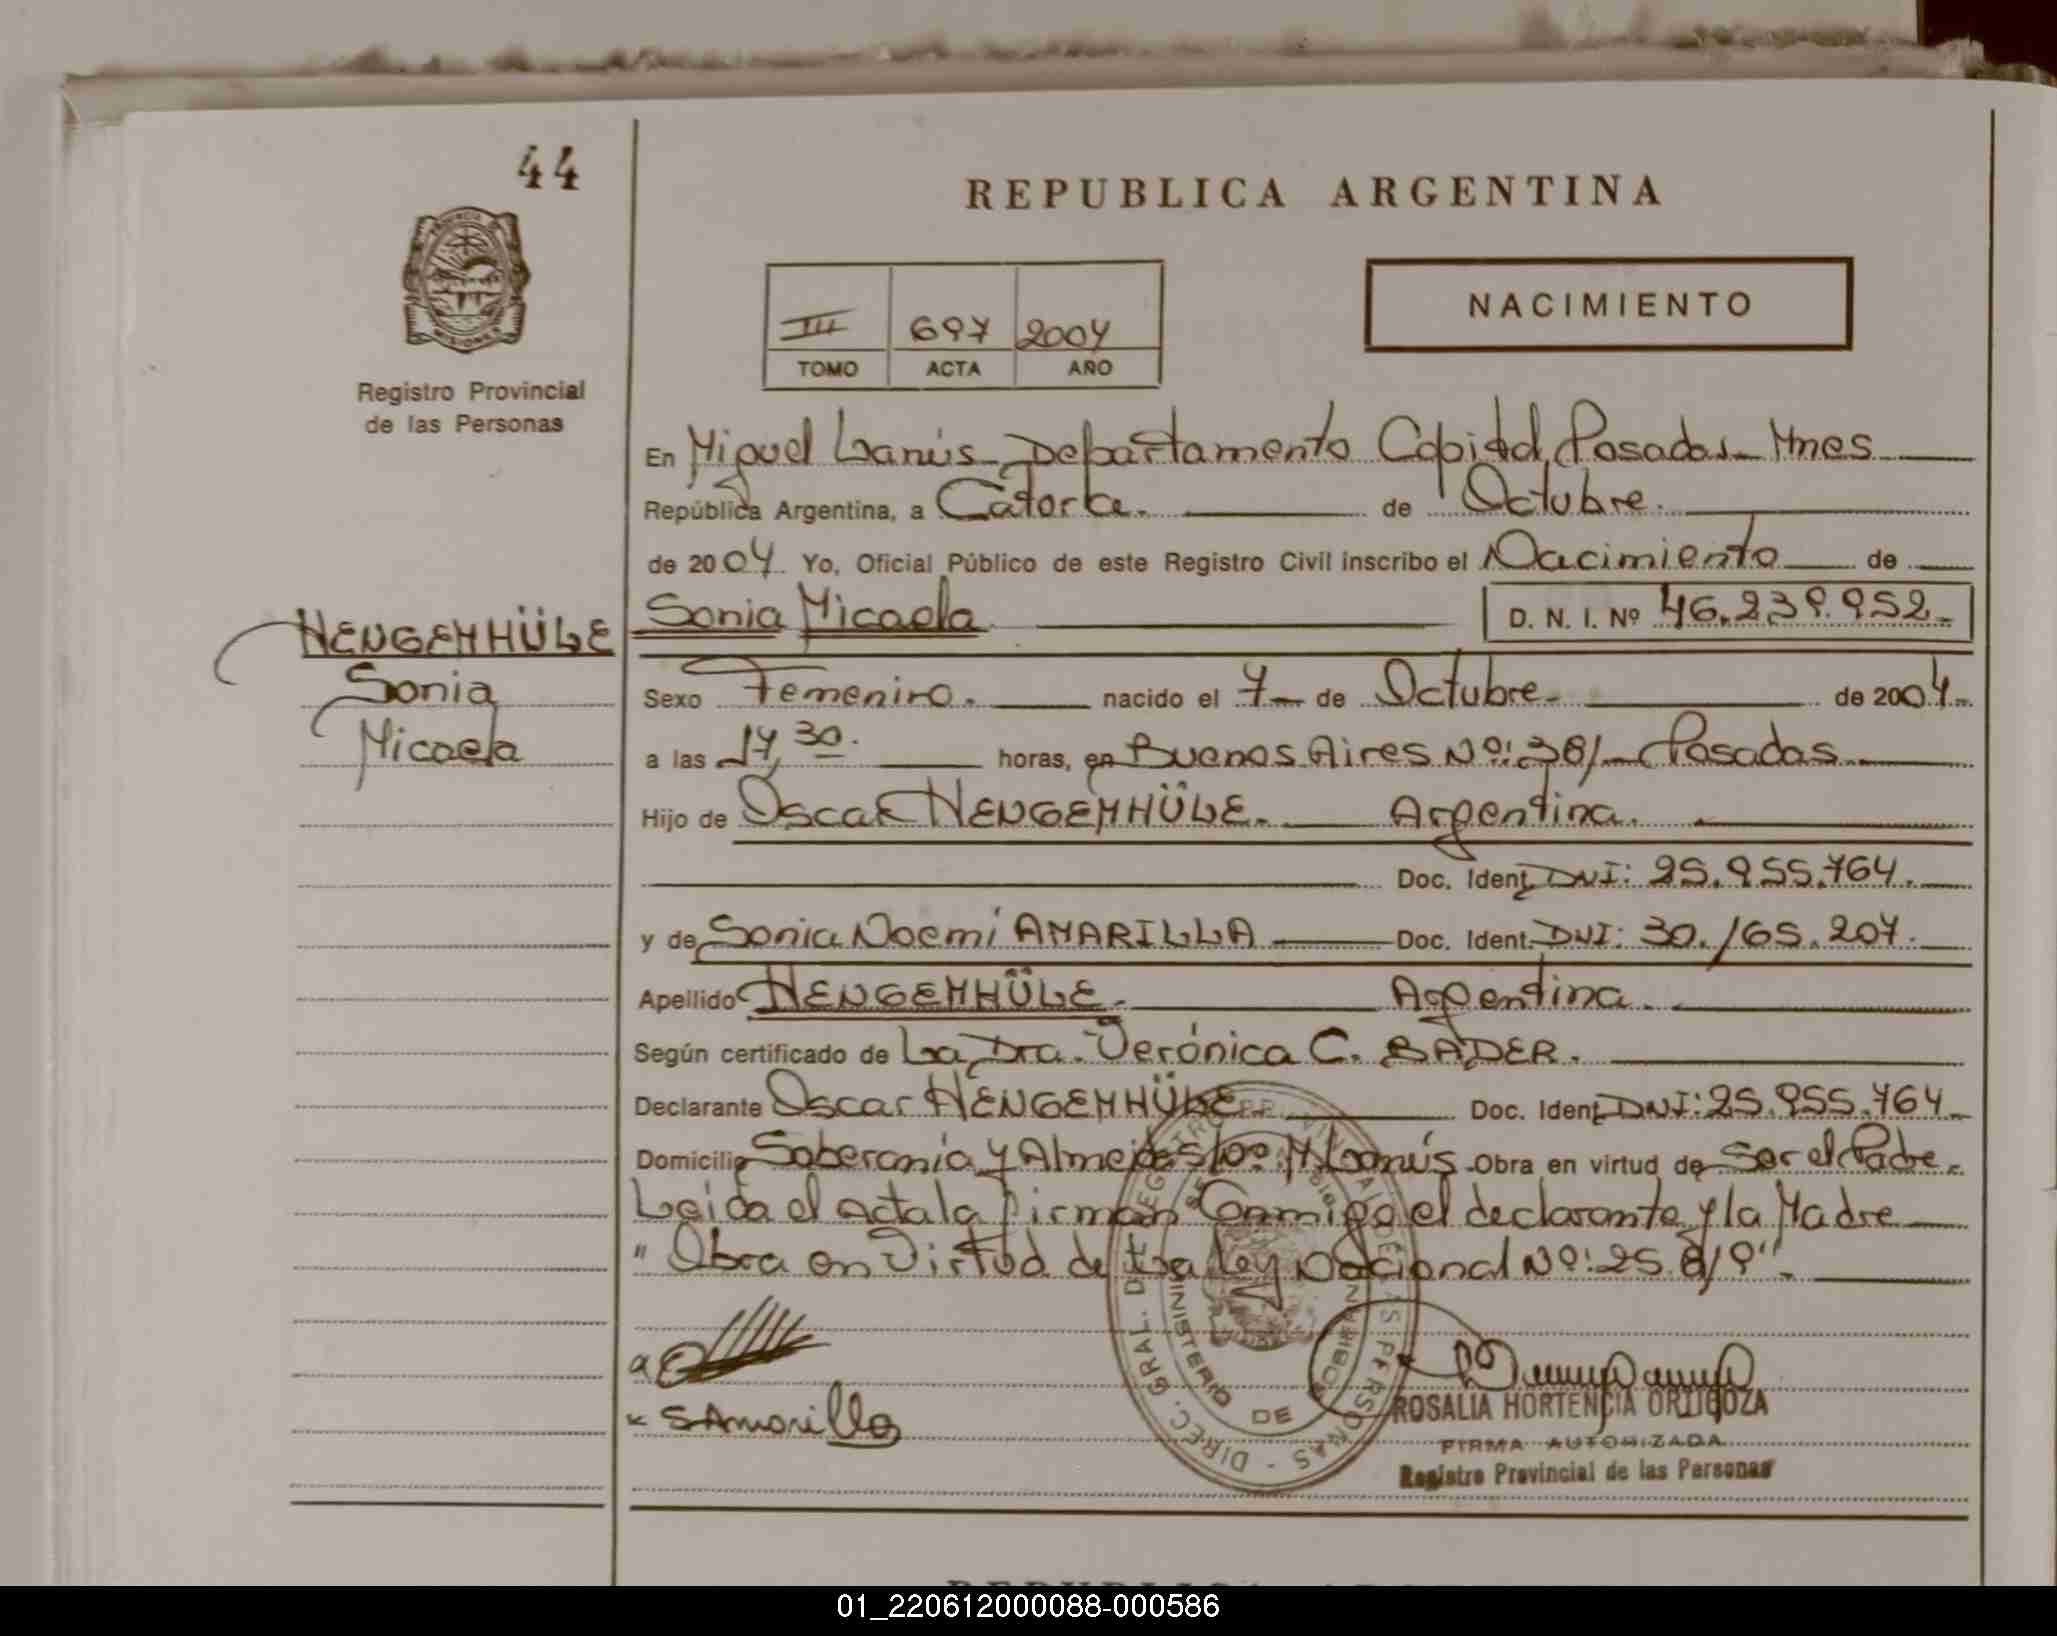 44
REPUBLICA ARGENTINA
NACIMIENTO
III 697 2004
TOMO ACTA AÑO
Registro Provincial
de las Personas
En Miguel Lanús - Departamento Capital, Posadas - Mnes
República Argentina, a Catorce. de Octubre.
de 2004. Yo, Oficial Público de este Registro Civil inscribo el Nacimiento de
HENGEMHÜLE
Sonia
Micaela
Sonia Micaela D. N. I. Nº 46.239.952.-
Sexo Femenino. nacido el 7- de Octubre- de 2004.-
a las 17,30. horas, en Buenos Aires Nº: 381- Posadas.
Hijo de Oscar HENGEMHÜLE. Argentina.
Doc. Ident. DNI: 25.955.764.
y de Sonia Noemí AMARILLA Doc. Ident. DNI: 30.165.207.
Apellido HENGEMHÜLE. Argentina.
Según certificado de La Dra. Verónica C. BADER.
Declarante Oscar HENGEMHÜLE Doc. Ident. DNI: 25.955.764
Domicilio Soberanía y M. Lanús -Obra en virtud de Ser el Padre.
Leída el acta la firman Conmigo el declarante y la Madre
" Obra en Virtud de La Ley Nacional Nº: 25.819".
SAmarilla
ROSALIA HORTENCIA ORTIGOZA
FIRMA AUTORIZADA
Registro Provincial de las Personas
01_220612000088-000586